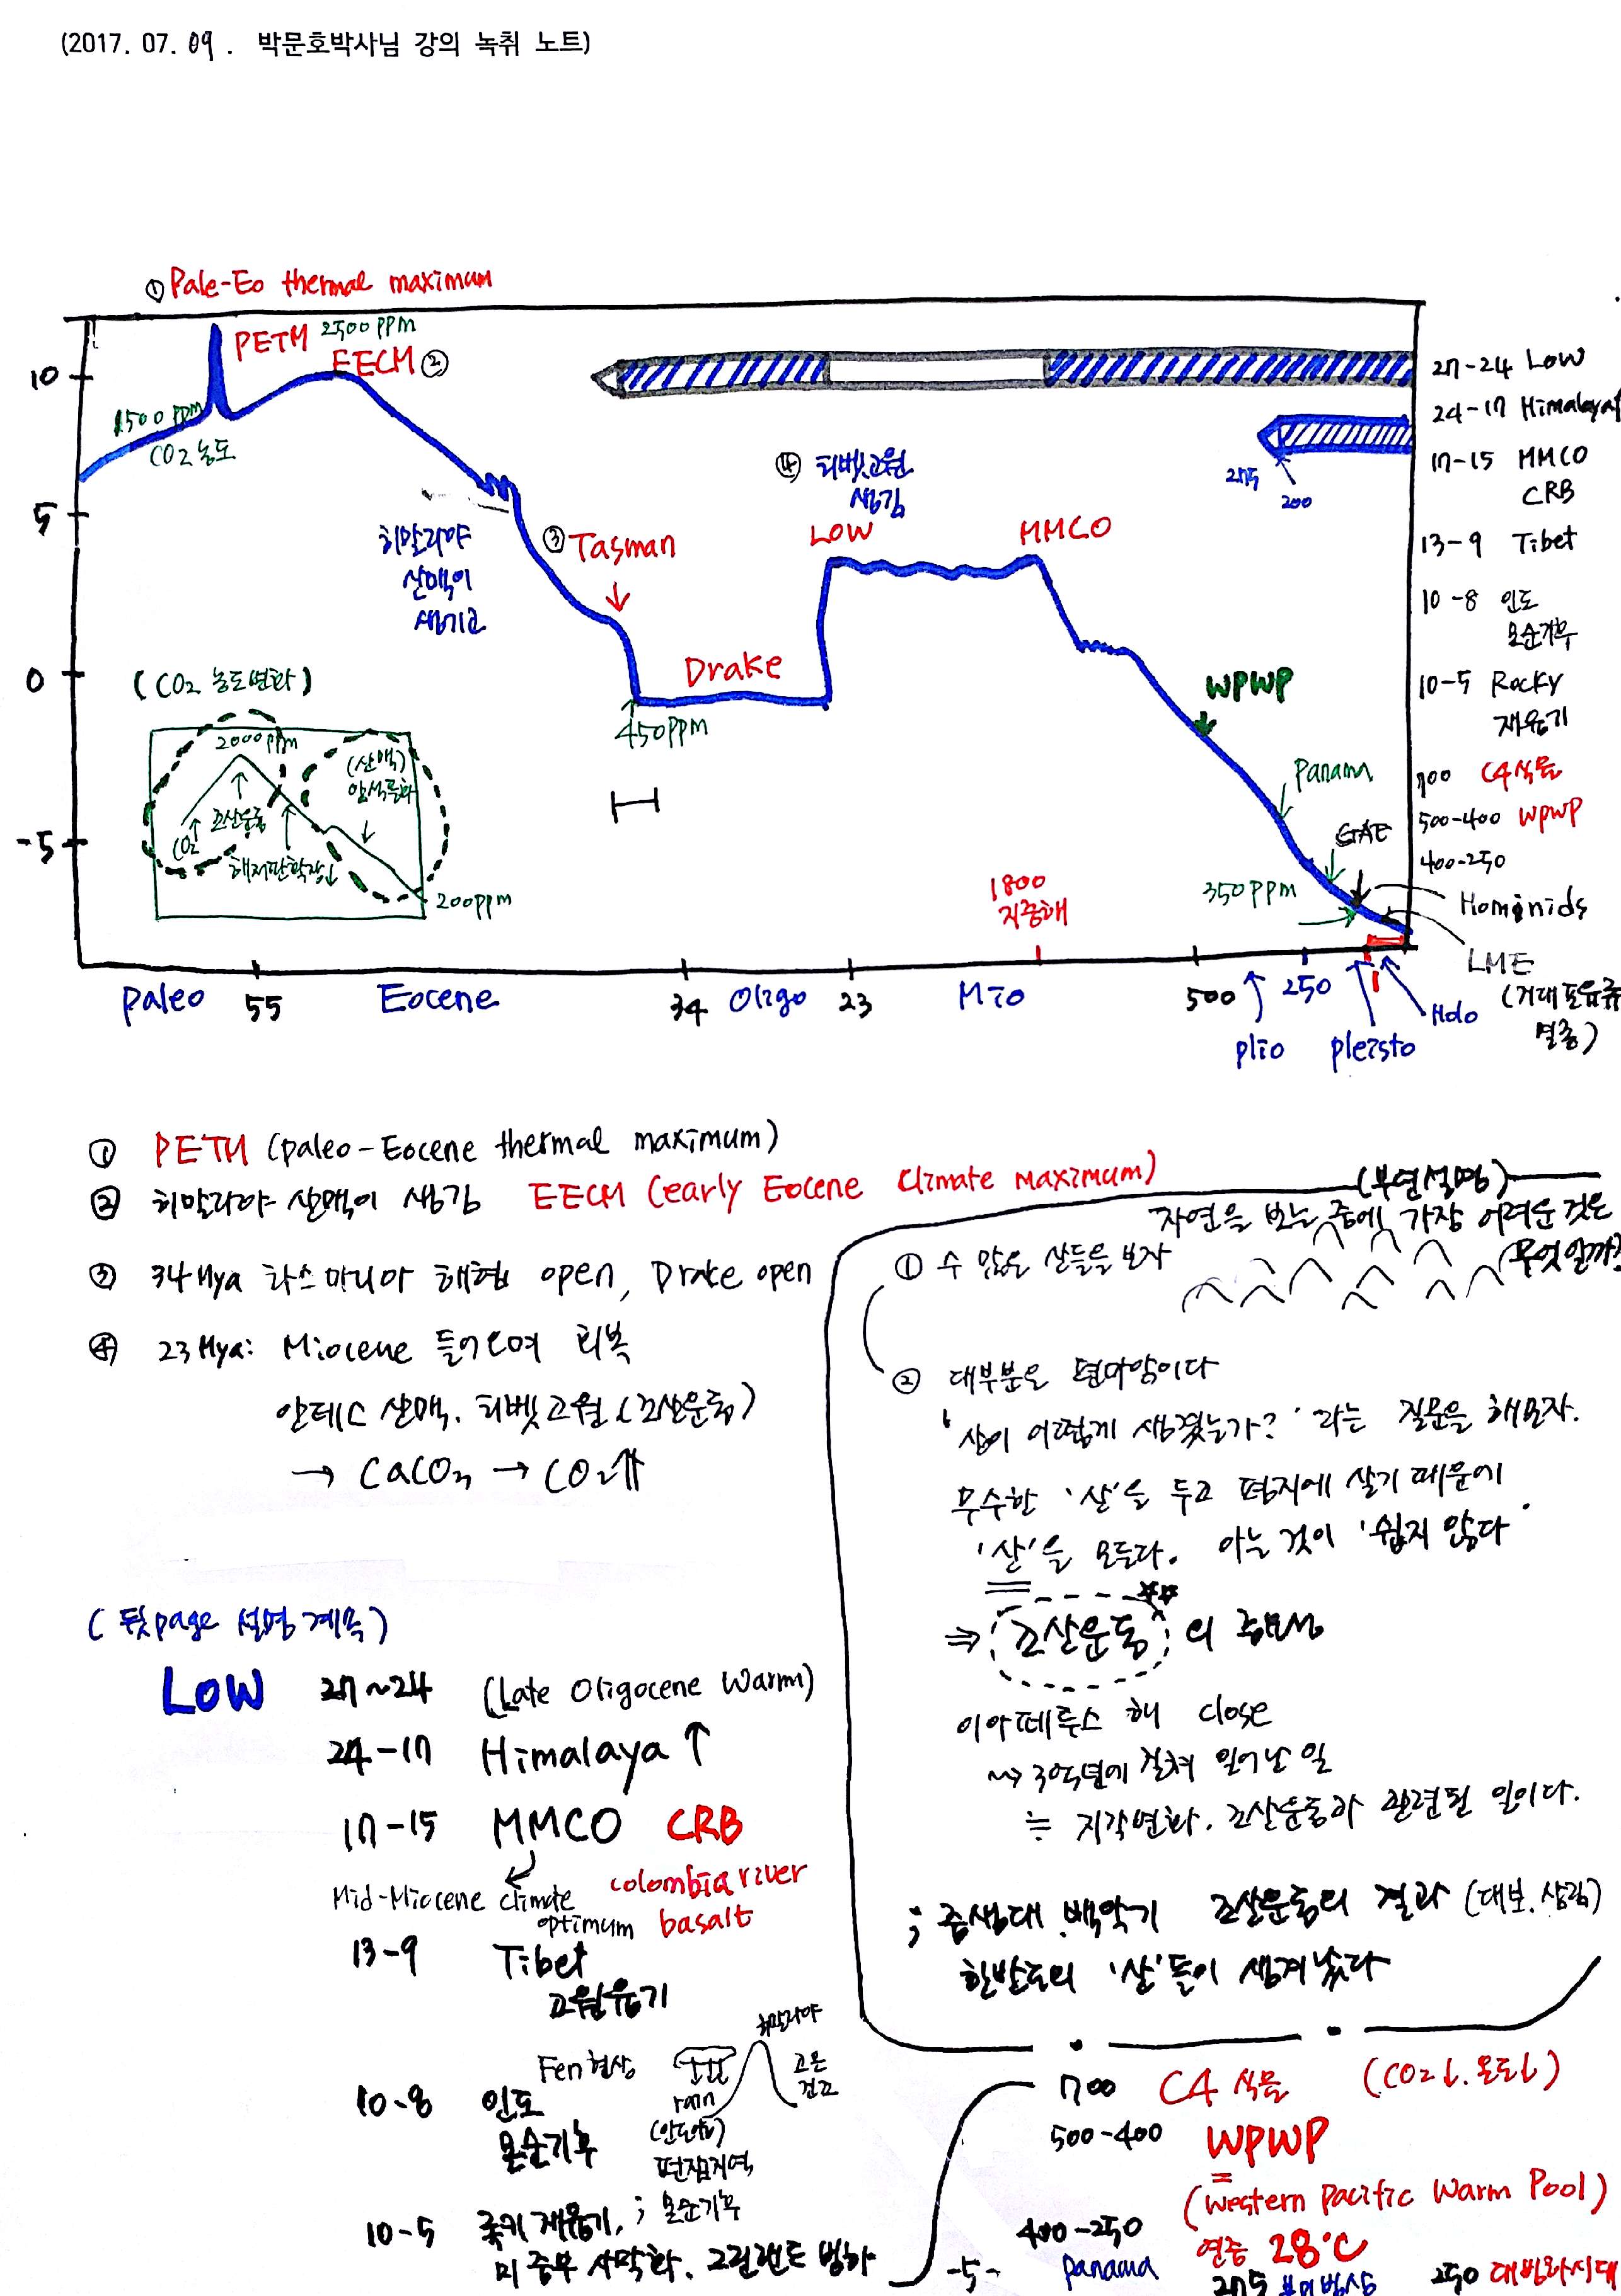 (2017. 07. 09. 박문호박사님 강의 녹취 노트)
① Pale-Eo thermal maximum
PETM 2500 ppm
EECM ②
10
1500 ppm
CO2 농도
27-24 Low
24-17 Himalaya↑
17-15 MMCO
CRB
④ 티벳고원
생김
275
200
5
히말라야
산맥이
생기고
③ Tasman
LOW
MMCO
13-9 Tibet
10-8 인도
몬순기후
0
(CO2 농도변화)
Drake
450ppm
WPWP
10-5 Rocky
재융기
2000ppm
(산맥)
암석풍화
조산운동
CO2
해저판확장↓
200ppm
Panama
700 C4식물
500-400 WPWP
400-250
-5
GAE
350ppm
1800
지중해
Hominids
LME
(거대포유류
멸종)
paleo 55 Eocene 34 Oligo 23 Mio 500 250
plio pleisto Holo
① PETM (paleo-Eocene thermal maximum)
② 히말라야 산맥이 생김 EECM (early Eocene Climate maximum)
③ 34Mya 타스마니아 해협 open, Drake open
④ 23Mya: Miocene 들어오며 회복
안데스 산맥. 티벳고원(조산운동)
→ CaCO3 → CO2⇈
(부연설명)
자연을 보는 중에 가장 어려운 것은
무엇일까?
① 수 많은 산들을 보자
② 대부분은 편마암이다
'산이 어떻게 생겼는가?' 라는 질문을 해보자.
무수한 '산'을 두고 평지에 살기 때문에
'산'을 모른다. 아는 것이 '쉽지 않다'
⇒ 조산운동의
이아페투스 해 close
⇝ 3억년에 걸쳐 일어난 일
≒ 지각변화. 조산운동과 관련된 일이다.
; 중생대. 백악기 조산운동의 결과 (대보.
한반도의 '산'들이 생겨났다
(뒷page 설명 계속)
LOW 27~24 (Late Oligocene Warm)
24-17 Himalaya ↑
17-15 MMCO CRB
Mid-Miocene climate
optimum
colombia river
basalt
13-9 Tibet
고원융기
Fen현상
히말라야
rain
고온
건조
10-8 인도
몬순기후
편잡지역
; 몬순기후
10-5 록키 재융기,
미 중부 사막화. 그린랜드 빙하
700 C4 식물 (CO2↓. 온도↓)
500-400 WPWP
=
(Western Pacific Warm Pool)
연중 28℃
400-250
panama
275 북미빙상
250 대빙하시대
-5-